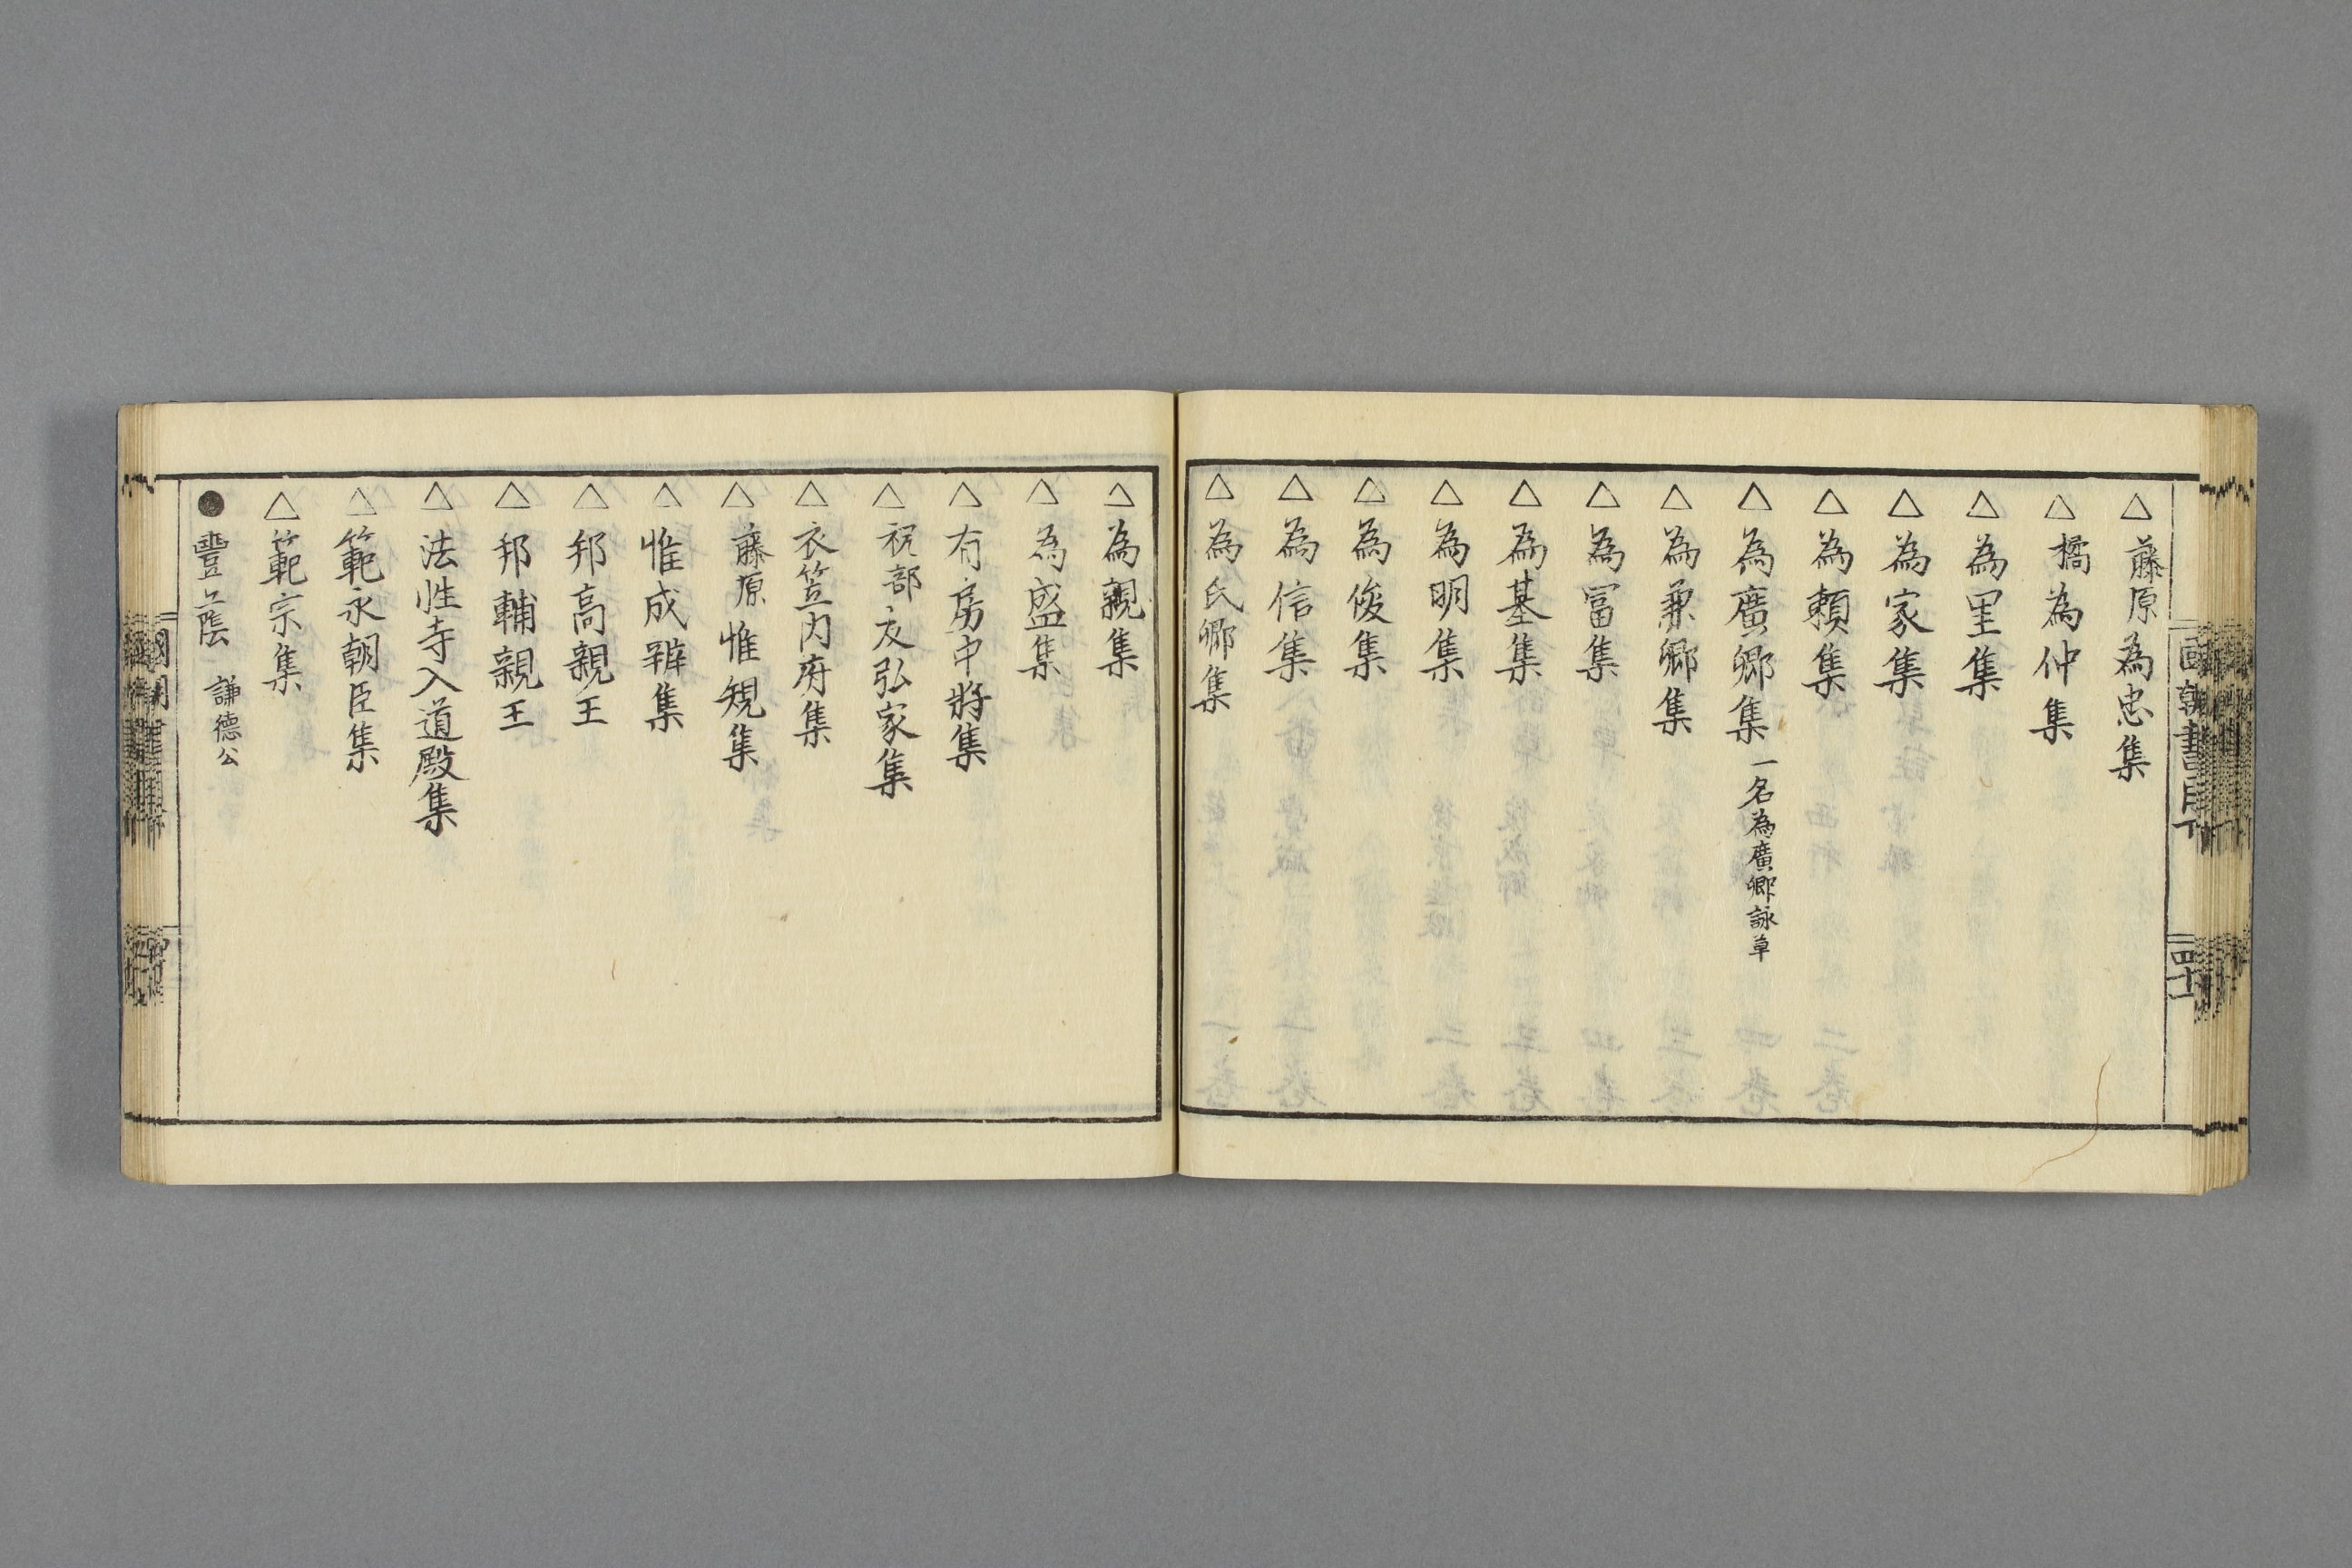 國朝書目下
四十一
△藤原為忠集
△橘為仲集
△為里集
△為家集
△為頼集
△為廣卿集 一名為廣卿詠草
△為兼卿集
△為冨集
△為基集
△為明集
△為俊集
△為信集
△為氏卿集
△為親集
△為盛集
△有房中將集
△祝部友弘家集
△衣笠内府集
△藤原惟規集
△惟成辨集
△邦高親王
△邦輔親王
△法性寺入道殿集
△範永朝臣集
△範宗集
●豐蔭 謙德公